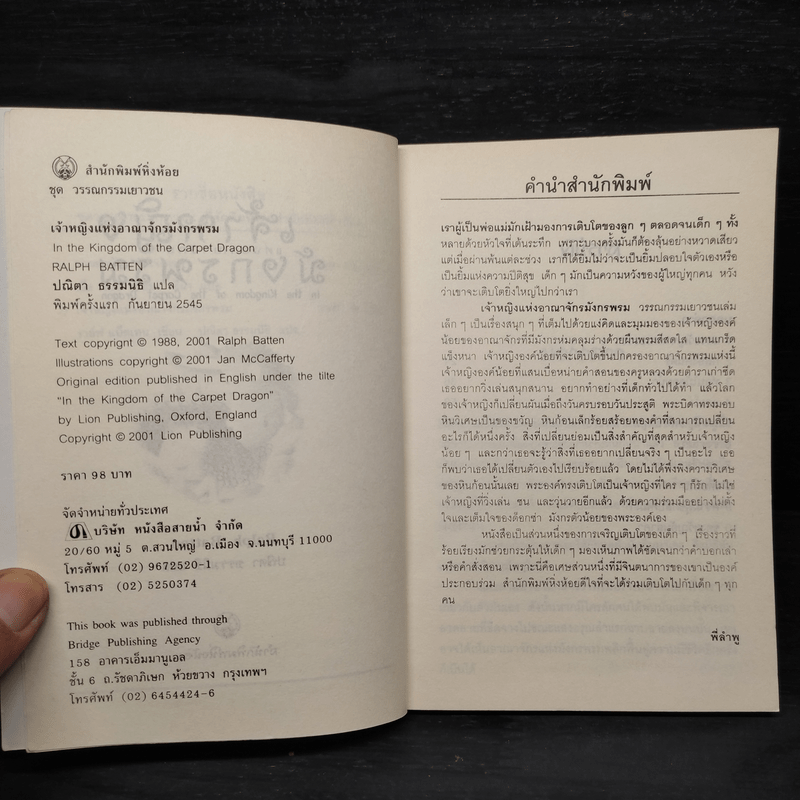 สำนักพิมพ์หิ่งห้อย
ชุด วรรณกรรมเยาวชน
เจ้าหญิงแห่งอาณาจักรมังกรพรม
In the Kingdom of the Carpet Dragon
RALPH BATTEN
ปณิตา ธรรมนิธิ แปล
พิมพ์ครั้งแรก กันยายน 2545
Text copyright © 1988, 2001 Ralph Batten
Illustrations copyright © 2001 Jan McCafferty
Original edition published in English under the tilte
"In the Kingdom of the Carpet Dragon"
by Lion Publishing, Oxford, England
Copyright © 2001 Lion Publishing
ราคา 98 บาท
จัดจำหน่ายทั่วประเทศ
บริษัท หนังสือสายน้ำ จำกัด
20/60 หมู่ 5 ต.สวนใหญ่ อ.เมือง จ.นนทบุรี 11000
โทรศัพท์ (02) 9672520-1
โทรสาร (02) 5250374
This book was published through
Bridge Publishing Agency
158 อาคารเอ็มมานูเอล
ชั้น 6 ถ.รัชดาภิเษก ห้วยขวาง กรุงเทพฯ
โทรศัพท์ (02) 6454424-6
คำนำสำนักพิมพ์
เราผู้เป็นพ่อแม่มักเฝ้ามองการเติบโตของลูก ๆ ตลอดจนเด็ก ๆ ทั้ง
หลายด้วยหัวใจที่เต้นระทึก เพราะบางครั้งมันก็ต้องลุ้นอย่างหวาดเสียว
แต่เมื่อผ่านพ้นแต่ละช่วง เราก็ได้ยิ้มไม่ว่าจะเป็นยิ้มปลอบใจตัวเองหรือ
เป็นยิ้มแห่งความปิติสุข เด็ก ๆ มักเป็นความหวังของผู้ใหญ่ทุกคน หวัง
ว่าเขาจะเติบโตยิ่งใหญ่ไปกว่าเรา
เจ้าหญิงแห่งอาณาจักรมังกรพรม วรรณกรรมเยาวชนเล่ม
เล็ก ๆ เป็นเรื่องสนุก ๆ ที่เต็มไปด้วยแง่คิดและมุมมองของเจ้าหญิงองค์
น้อยของอาณาจักรที่มีมังกรห่มคลุมร่างด้วยผืนพรมสีสดใส แทนเกร็ด
แข็งหนา เจ้าหญิงองค์น้อยที่จะเติบโตขึ้นปกครองอาณาจักรพรมแห่งนี้
เจ้าหญิงองค์น้อยที่แสนเบื่อหน่ายคำสอนของครูหลวงด้วยตำราเก่าซีด
เธออยากวิ่งเล่นสนุกสนาน อยากทำอย่างที่เด็กทั่วไปได้ทำ แล้วโลก
ของเจ้าหญิงก็เปลี่ยนผันเมื่อถึงวันครบรอบวันประสูติ พระบิดาทรงมอบ
หินวิเศษเป็นของขวัญ หินก้อนเล็กร้อยสร้อยทองคำที่สามารถเปลี่ยน
อะไรก็ได้หนึ่งครั้ง สิ่งที่เปลี่ยนย่อมเป็นสิ่งสำคัญที่สุดสำหรับเจ้าหญิง
น้อย ๆ และกว่าเธอจะรู้ว่าสิ่งที่เธออยากเปลี่ยนจริง ๆ เป็นอะไร เธอ
ก็พบว่าเธอได้เปลี่ยนตัวเองไปเรียบร้อยแล้ว โดยไม่ได้พึ่งพิงความวิเศษ
ของหินก้อนนั้นเลย พระองค์ทรงเติบโตเป็นเจ้าหญิงที่ใคร ๆ ก็รัก ไม่ใช่
เจ้าหญิงที่วิ่งเล่น ซน และวุ่นวายอีกแล้ว ด้วยความร่วมมืออย่างไม่ตั้ง
ใจและเต็มใจของด็อกซ่า มังกรตัวน้อยของพระองค์เอง
หนังสือเป็นส่วนหนึ่งของการเจริญเติบโตของเด็ก ๆ เรื่องราวที่
ร้อยเรียงมักช่วยกระตุ้นให้เด็ก ๆ มองเห็นภาพได้ชัดเจนกว่าคำบอกเล่า
หรือคำสั่งสอน เพราะนี่คือเศษส่วนหนึ่งที่มีจินตนาการของเขาเป็นองค์
ประกอบร่วม สำนักพิมพ์หิ่งห้อยดีใจที่จะได้ร่วมเติบโตไปกับเด็ก ๆ ทุก
คน
พี่ลำพู